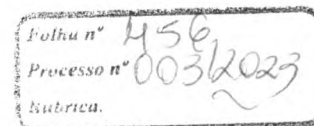 Folha nº 456
Processo nº 003/2023
Rubrica.